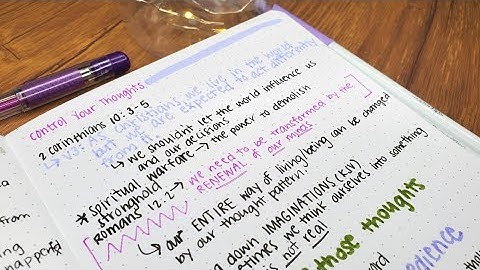 Control Your Thoughts
2 Corinthians 10:3-5
↳ v3: As christians we live in the world
but we are expected to act differently
from it.
↳ we shouldn't let the world influence us
and our decisions
* spiritual warfare → the power to demolish
stronghold
Romans 12:2 → we need to be transformed by the
RENEWAL of our minds
↳ our ENTIRE way of living/being can be changed
by our thought pattern!
down IMAGINATIONS (KJV)
times we think ourselves into something
is not real
those thoughts
edience
from